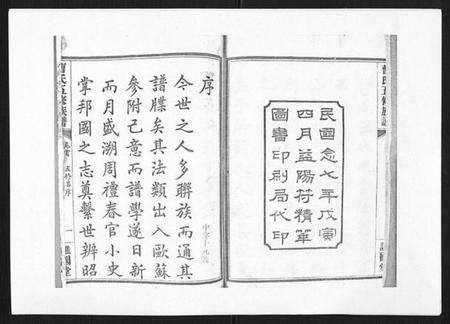 民國念七年戊寅
四月益陽符精華
圖書印刷局代印
序
今世之人多聯族而通其
譜牒矣其法類出入歐蘇
參附己意而譜學遂日新
而月盛溯周禮春官小史
掌邦國之志奠繫世辨昭
曹氏五修族譜